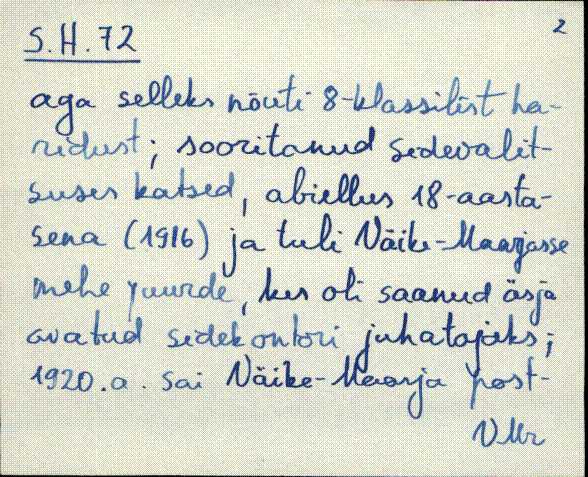 2
S.H.72
aga selleks nõuti 8-klassilist ha-
ridust; sooritanud sidevalit-
suses katsed, abiellus 18-aasta-
sena (1916) ja tuli Väike-Maarjasse
mehe juurde, kes oli saanud äsja
avatud sidekontori juhatajaks;
1920.a. sai Väike-Maarja post-
VMr